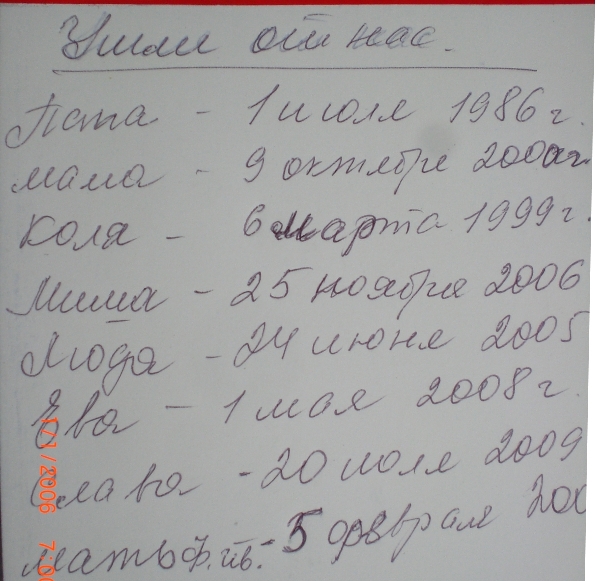 Ушли от нас.
Папа - 1 июля 1986 г.
мама - 9 октября 2000г.
Коля - 6 марта 1999 г.
Миша - 25 ноября 2006
Люда - 24 июня 2005
Ева - 1 мая 2008 г.
Слава - 20 июля 2009
мать - 5 февраля 200